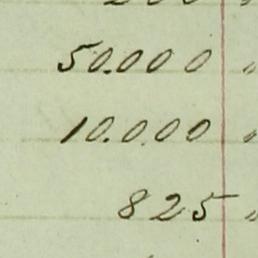 200 "
50.000 "
10.000 "
825 "